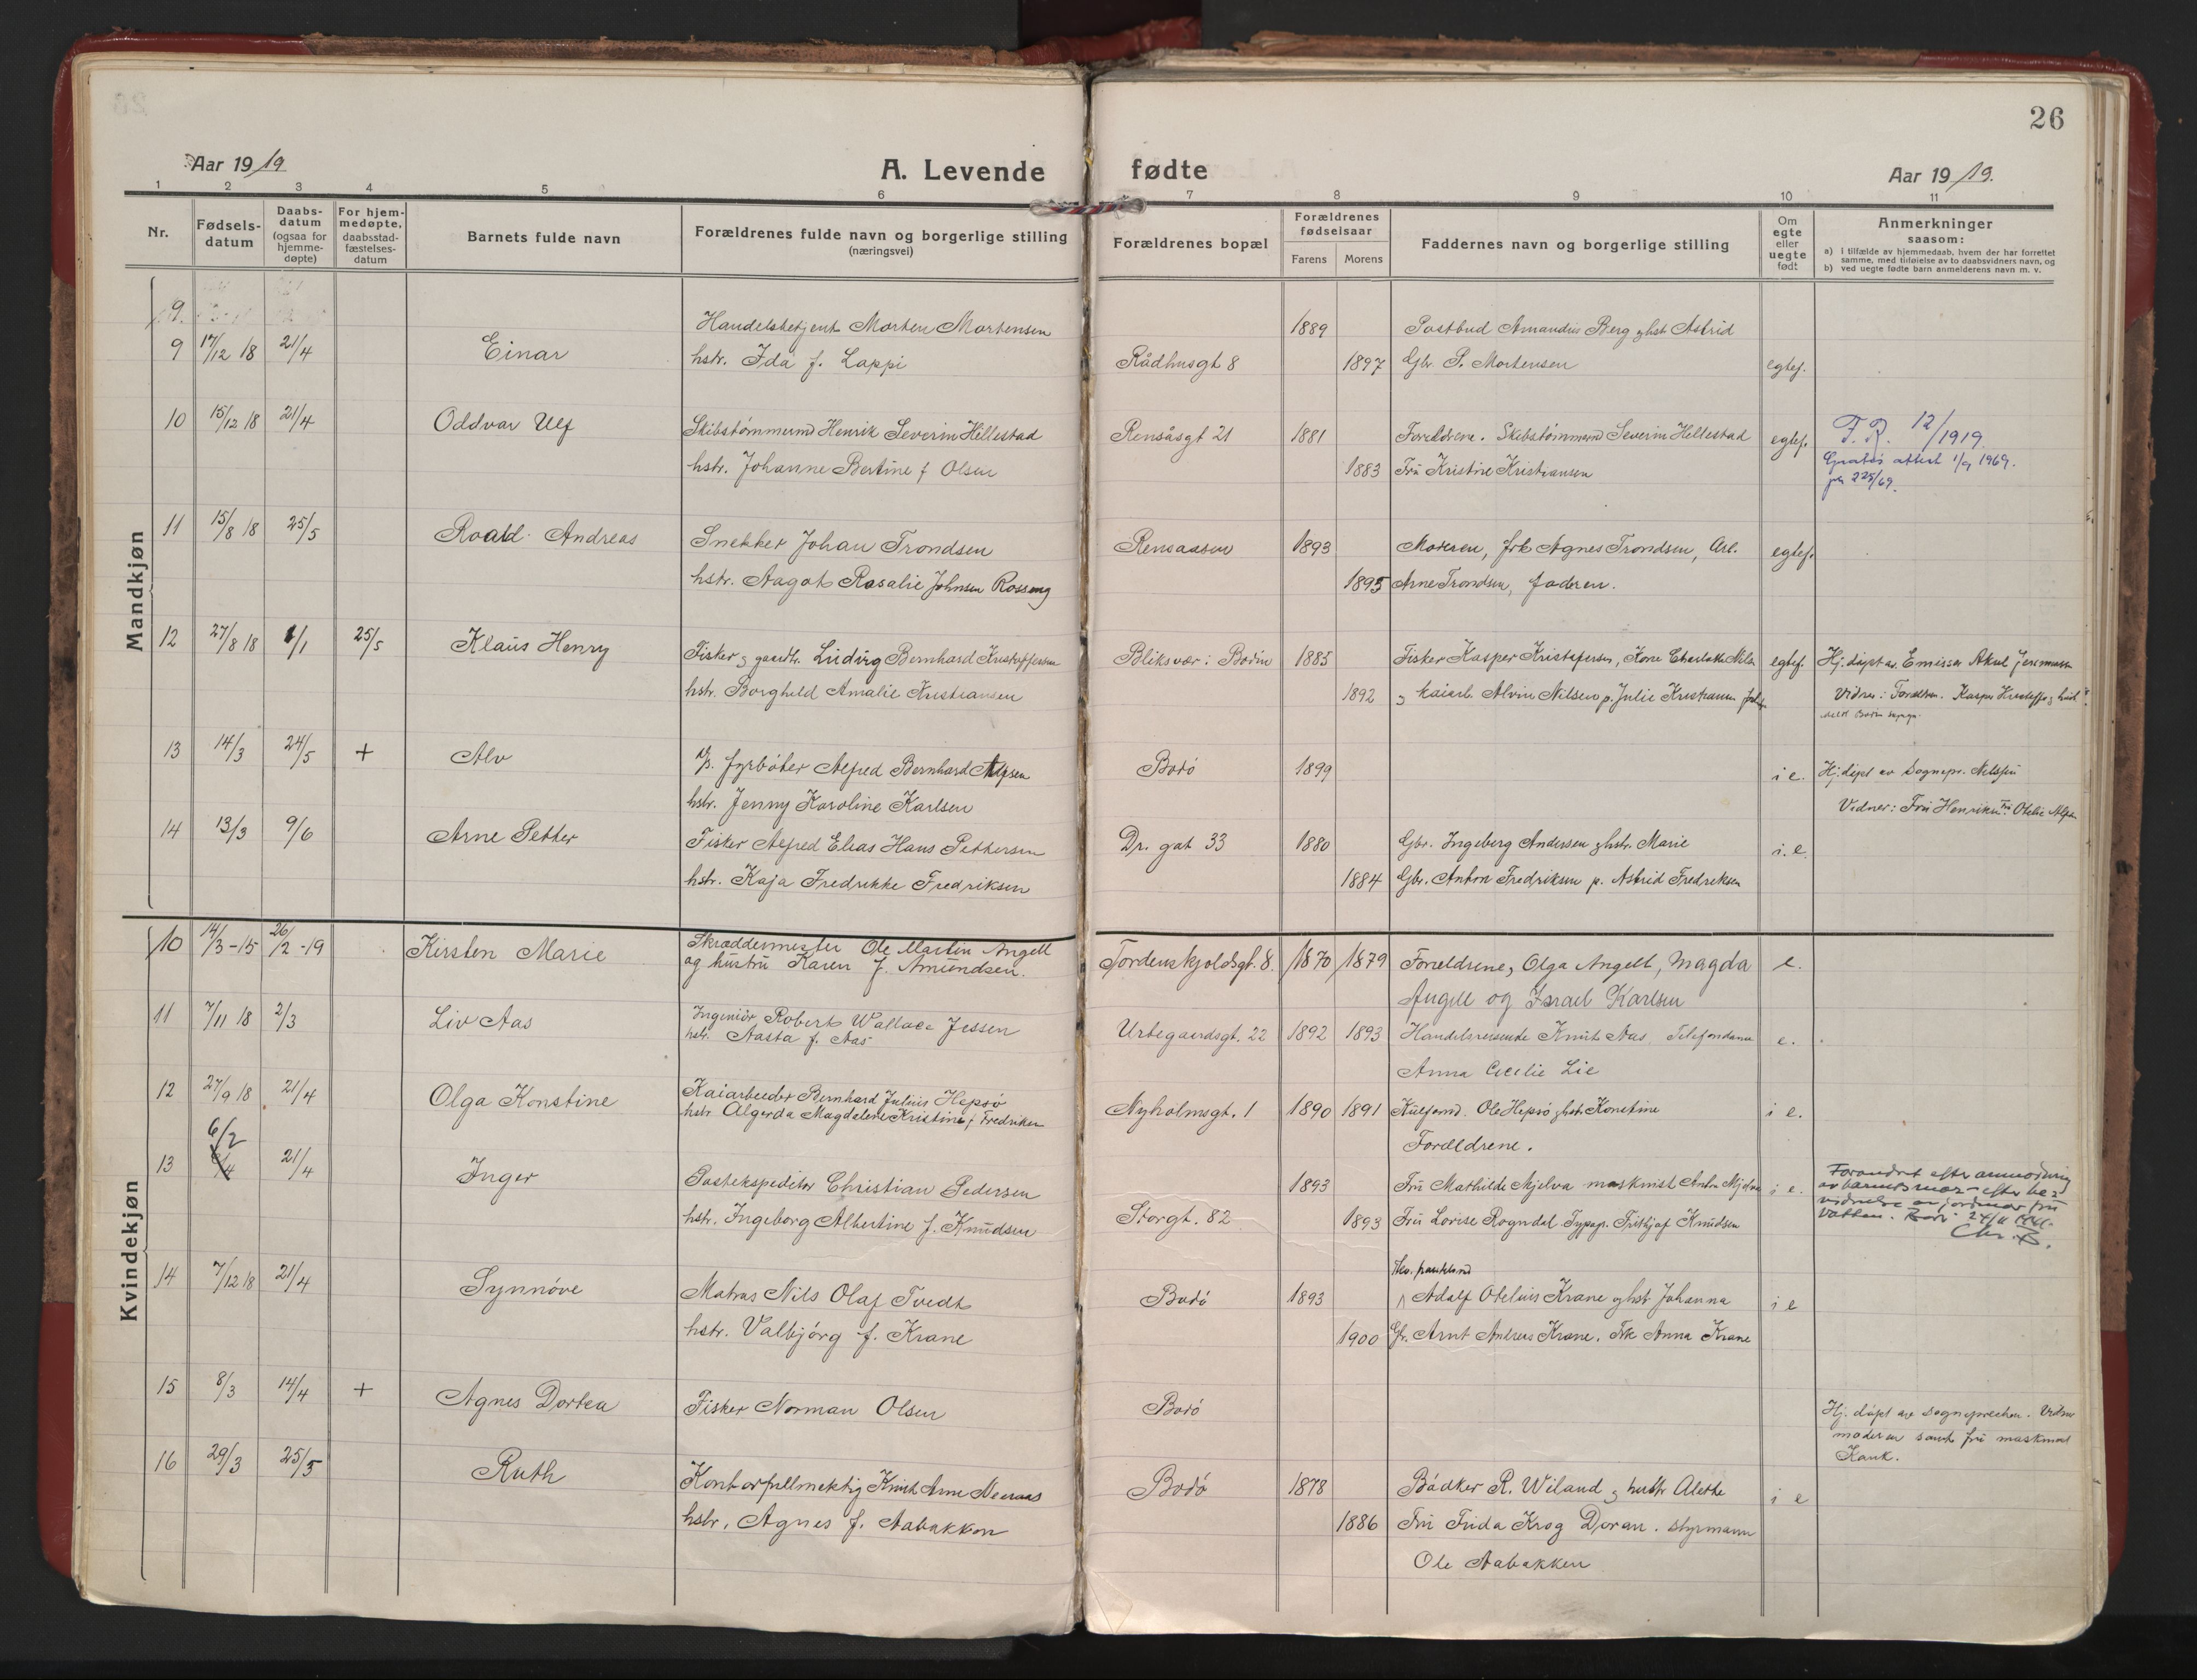 26
Aar 1919
A. Levende fødte
Aar 1919.
1 2 3 4 5 6 7 8 9 10 11
Nr.
Fødsels-
datum
Daabs-
datum
(ogsaa for
hjemme-
døpte)
For hjem-
medøpte,
daabsstad-
fæstelses-
datum
Barnets fulde navn
Forældrenes fulde navn og borgerlige stilling
(næringsvei)
Forældrenes bopæl
Forældrenes
fødselsaar
Farens Morens
Faddernes navn og borgerlige stilling
Om
egte
eller
uegte
født
Anmerkninger
saasom:
a) i tilfælde av hjemmedaab, hvem der har forrettet
samme, med tilføielse av to daabsvidners navn, og
b) ved uegte fødte barn anmelderens navn m. v.
Mandkjøn
9.
Handelsbetjent Morten Mortensen 1889 Postbud Amandus Berg & hst Astrid
9 17/12 18 21/4 Einar hstr. Ida f. Lappi Rådhusgt 8 1897 Gbr P. Mortensen egtef.
10 15/12 18 21/4 Oddvar Ulf Skibstømmermd Henrik Severin Hellestad Rensåsgt 21 1881 Foreldrene. Skibstømmermd Severin Hellestad egtef. F. R. 12/1919.
hstr. Johanne Bertine f Olsen 1883 Fru Kristine Kristiansen Gratis attest 1/9 1969.
jr 225/69.
11 15/8 18 25/5 Roald Andreas Snekker Johan Trondsen Rensaasen 1893 Moderen, frk Agnes Trondsen, Arb. egtef.
hstr. Aagot Rosalie Johnsen Rosseng 1895 Arne Trondsen, faderen.
12 27/8 18 1/1 25/5 Klaus Henry Fisker & gaardbr. Ludvig Bernhard Kristoffersen Bliksvær i Bodin 1885 Fisker Kasper Kristofersen, Kone Charlotte Nilsen egtef. Hj. døpt av Emissær Aksel Jeremiassen
hstr. Borghild Amalie Kristiansen 1892 & kaiarb. Alvin Nilsen p. Julie Kristiansen Vidner: Foreldren. Kasper Kristoffs &
13 14/3 24/5 + Alv fyrbøter Alfred Bernhard Alfsen Bodø 1899 i e. Hj. døpt av Sognepr. Nilssen
hstr. Jenny Karoline Karlsen Vidner: Fru Henriksen Fru Otelie Alfsen
14 13/3 9/6 Arne Petter Fisker Alfred Elias Hans Pettersen Dr. gat 33 1880 Gbr. Ingeberg Andersen & hstr. Marie i. e.
hstr. Kaja Fredrikke Fredriksen 1884 Gbr. Anton Fredriksen p. Astrid Fredriksen
Kvindekjøn
10 14/3-15 26/2-19 Kirsten Marie Skræddermester Ole Martin Angell Tordenskjoldsgt. 8. 1870 1879 Foreldrene, Olga Angell, Magda e.
og hustru Karen f. Amundsen. Angell og Israel Karlsen
11 7/11 18 2/3 Liv Aas Ingeniør Robert Wallace Jessen Urtegaardsgt. 22 1892 1893 Handelsreisende Knut Aas, Telefondame e.
hstr. Aasta f. Aas Anna Cecilie Lie
12 27/9 18 21/4 Olga Konstine Kaiarbeider Bernhard Julius Hepsø Nyholmsgt. 1 1890 1891 Kulfomd. Ole Hepsø & hstr Konstine i e.
hstr. Algerda Magdalene Kristine f Fredriksen Foreldrene.
6/2
13 6/4 21/4 Inger Postekspeditør Christian Pedersen 1893 Fru Mathilde Mjelva maskinist Anton Mjelva i e. Forandret efter anmodning
av barnets mor – efter be-
vidnelse av jordmor fru
Vatten. Bodø 24/11
Chr. B.
hstr. Ingeborg Albertine f. Knudsen Storgt. 82 1893 Fru Lovise Rogndal Typogr. Trithjof Knudsen
14 7/12 18 21/4 Synnøve Matros Nils Olaf Tvedt Bodø 1893 Adolf Oteluis Krane & hst Johanna i e
hstr. Valbjørg f. Krane 1900 Gbr. Arnt Andreas Krane. Frk Anna Krane
15 8/3 14/4 + Agnes Dortea Fisker Norman Olsen Bodø Hj. døpt av Sognepresten. Vidner
moderen samt fru maskinist
Kank.
16 29/3 25/5 Ruth Kontorfullmektig Knut Arne Neeraas Bodø 1878 Bødker R. Wiland & hustr Alethe i e
hstr. Agnes f. Aabakken 1886 Fru Frida Krog Doran. styrmann
Ole Aabakken